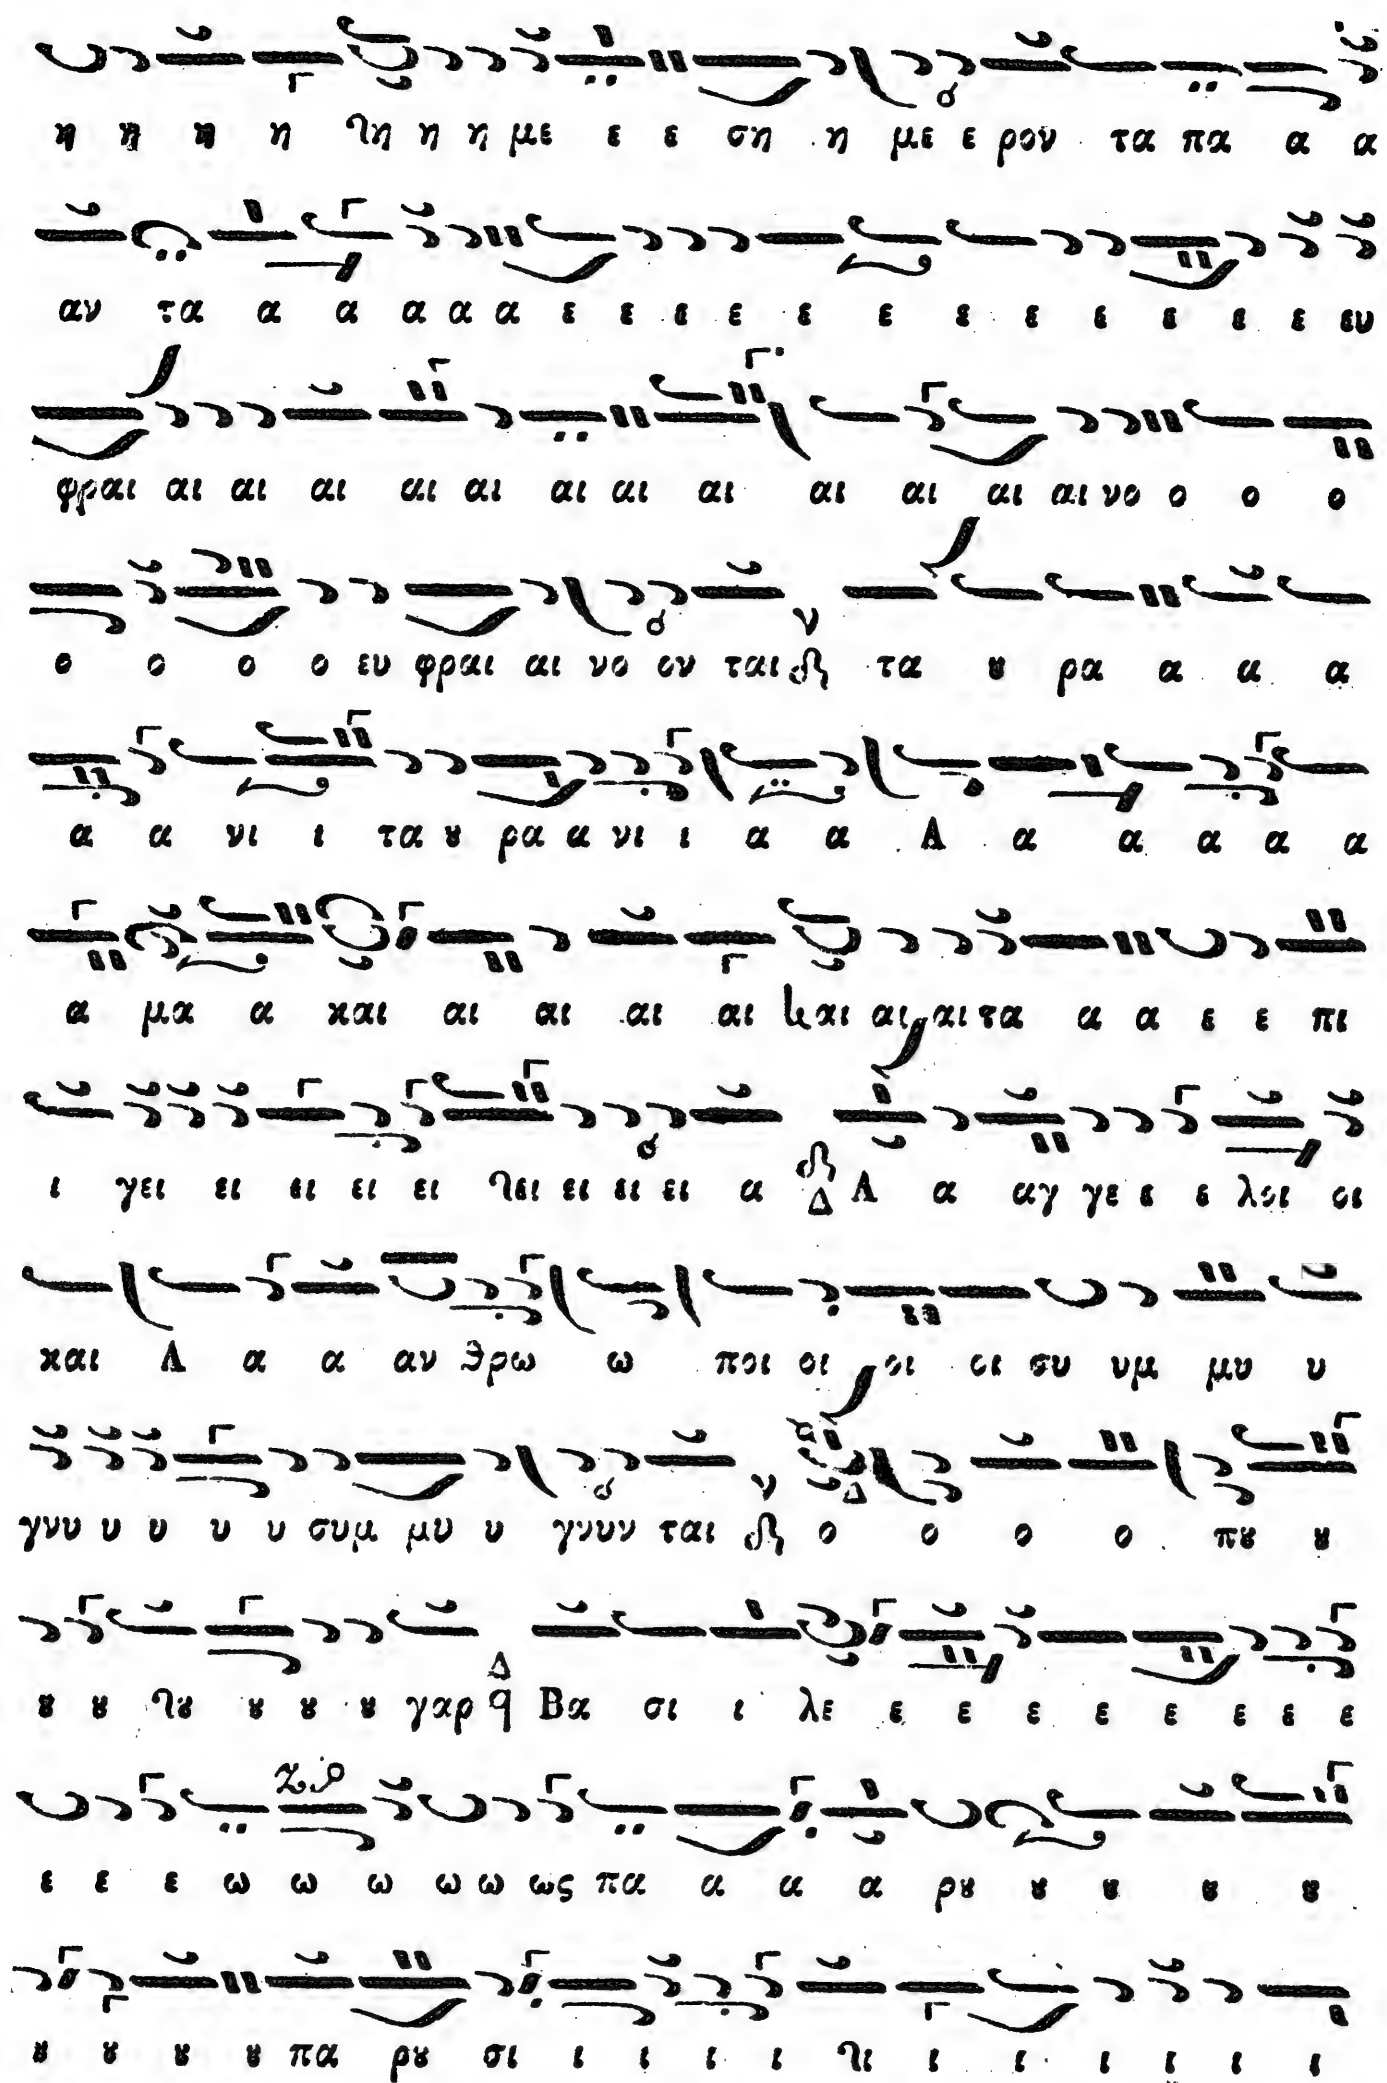 η η η η Ⲓη η η με ε ε ση η με ε ρον τα πα α α
αν τα α α α α α ε ε ε ε ε ε ε ε ε ε ε ε ευ
φραι αι αι αι αι αι αι αι αι αι αι αι αι νο ο ο ο
ο ο ο ο ευ φραι αι νο ον ται τα ȣ ρα α α α
α α νι ι τα ȣ ρα α νι ι α α Α α α α α α
α μα α και αι αι αι αι και αι αι τα α α ε ε πι
ι γει ει ει ει ει γει ει ει ει α Δ Α α αγ γε ε ε λοι οι
και Α α α αν θρω ω ποι οι οι οι συ υμ μυ υ
γνυ υ υ υ υ συμ μυ υ γνυν ται ο ο ο ο πȣ ȣ
ȣ ȣ γȣ ȣ ȣ ȣ γαρ Δ q Βα σι ι λε ε ε ε ε ε ε ε ε
ε ε ε ω ω ω ω ω ως πα α α α ρȣ ȣ ȣ ȣ ȣ
ȣ ȣ ȣ ȣ πα ρȣ σι ι ι ι ι γι ι ι ι ι ι ι